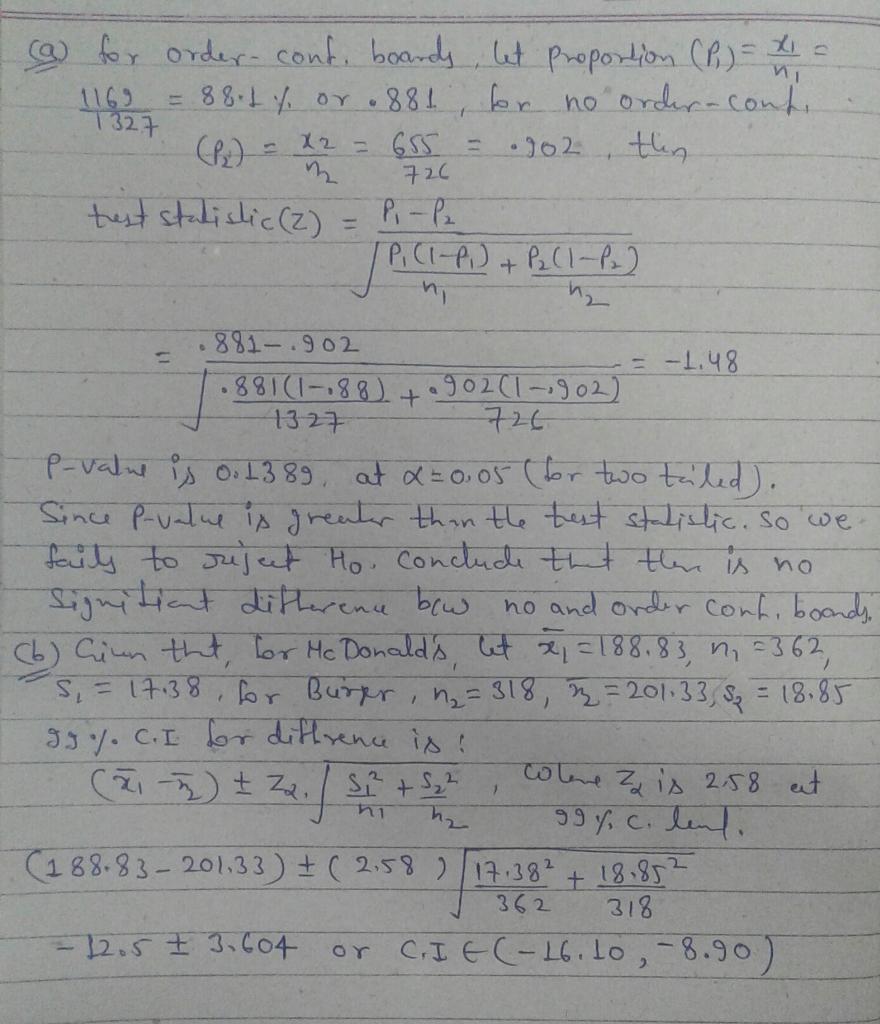 (a) for order-conf. boards, let proportion (P₁) = x₁/n₁ =
1169/1327 = 88.1 % or .881, for no order-conf.
(P₂) = x₂/n₂ = 655/726 = .902, then
test statistic (Z) = P₁-P₂ / √(P₁(1-P₁)/n₁ + P₂(1-P₂)/n₂)
= .881-.902 / √(.881(1-.88)/1327 + .902(1-.902)/726) = -1.48
P-value is 0.1389, at α=0.05 (for two tailed).
Since P-value is greater than the test statistic. So we
fails to reject H₀. Conclude that there is no
significant difference b/w no and order conf. boards.
(b) Given that, for McDonald's, let x̄₁ = 188.83, n₁ = 362,
S₁ = 17.38, for Burger, n₂ = 318, x̄₂ = 201.33, S₂ = 18.85
99 %. C.I for diffrence is :
(x̄₁ - x̄₂) ± Zα. √(S₁²/n₁ + S₂²/n₂), where Zα is 2.58 at
99 % c. level.
(188.83 - 201.33) ± (2.58) √(17.38²/362 + 18.85²/318)
- 12.5 ± 3.604 or C.I ∈ (-16.10, -8.90)